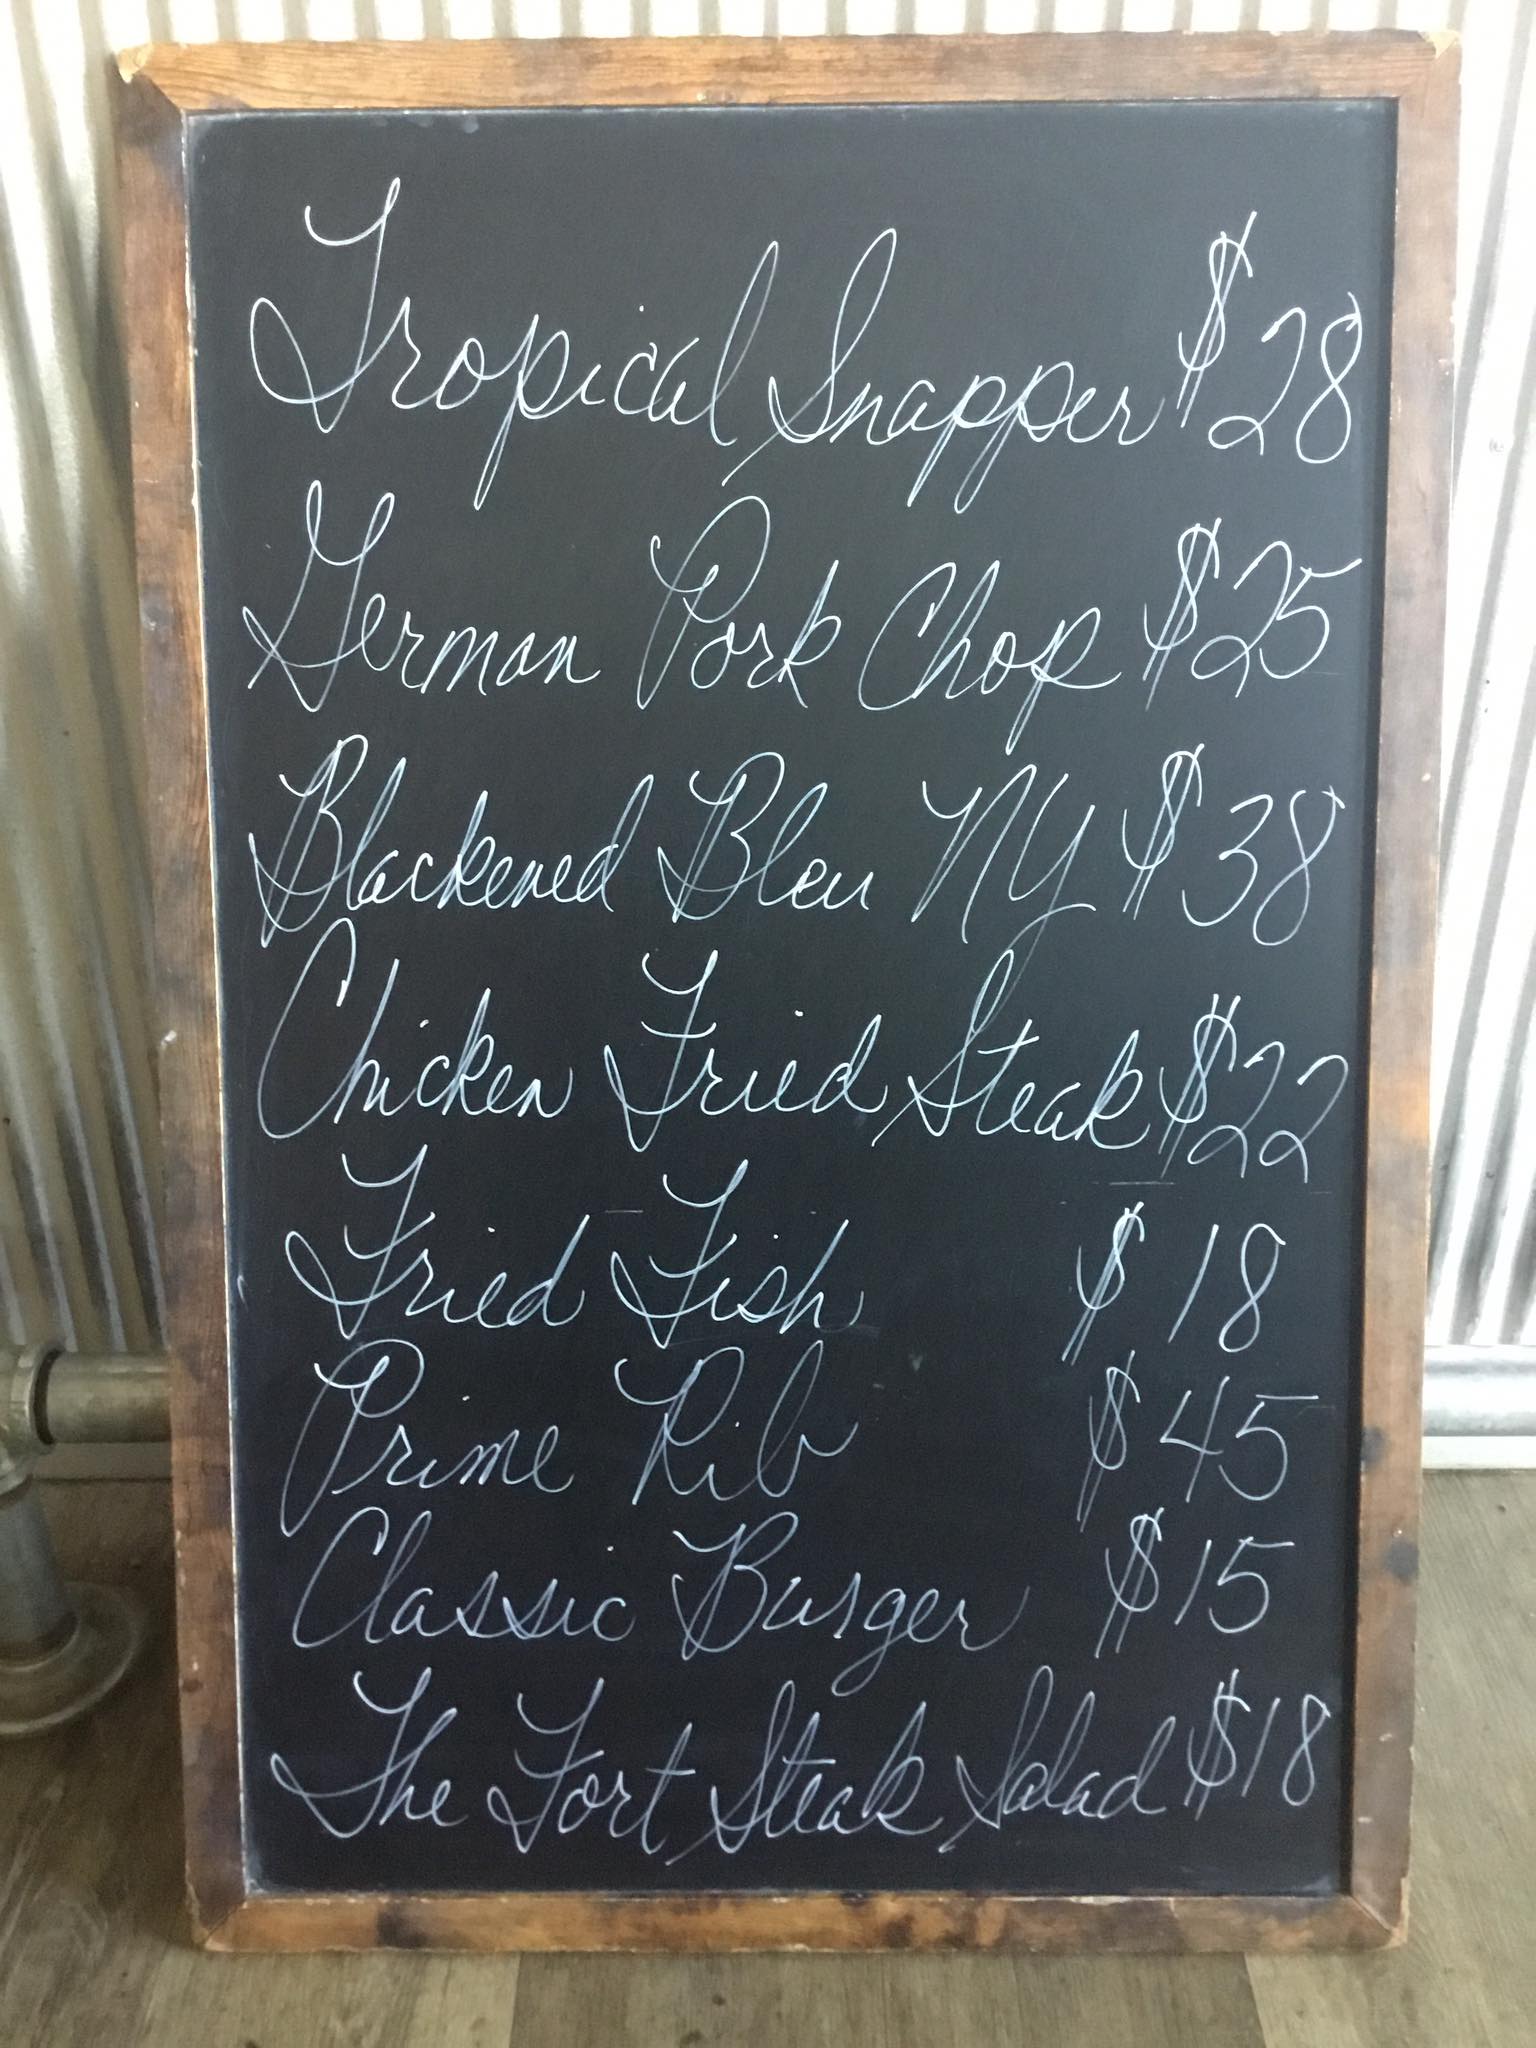 Tropical Snapper $28
German Pork Chop $25
Blackened Bleu NY $38
Chicken Fried Steak $22
Fried Fish $18
Prime Rib $45
Classic Burger $15
The Fort Steak Salad $18